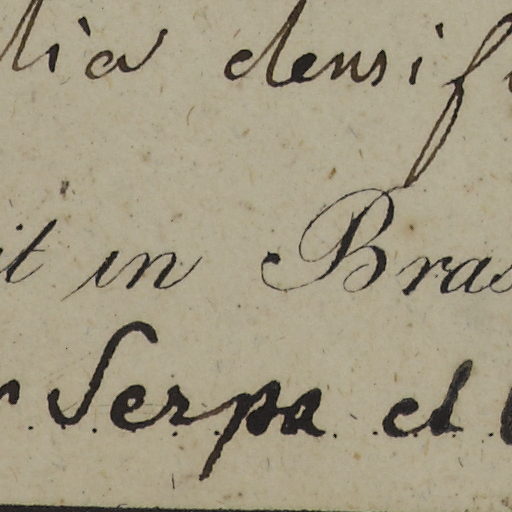 lia densif
it in Bras
Serpa et